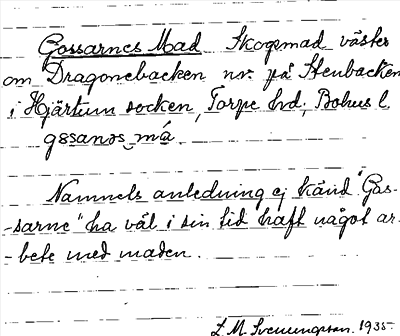 Gossarnes Mad Skogsmad väster
om Dragonebacken nr. på Stenbacken
i Hjärtum socken, Torpe hd; Bohus l.
gssanas má
Namnets anledning ej känd "Gos-
-sarne" ha väl i sin tid haft något ar-
-bete med maden.
L.M. Svenungsson. 1935